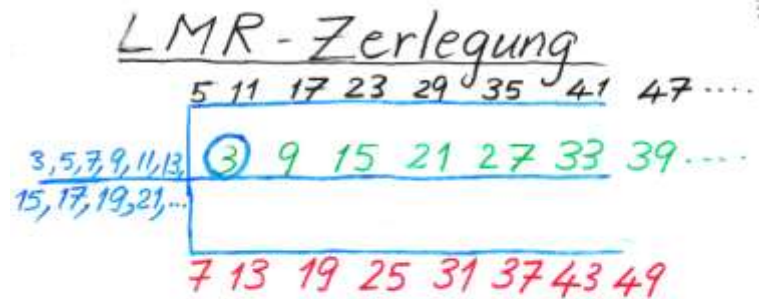 LMR-Zerlegung
5 11 17 23 29 35 41 47 ....
3, 5, 7, 9, 11, 13,
15, 17, 19, 21, ...
3 9 15 21 27 33 39 ....
7 13 19 25 31 37 43 49